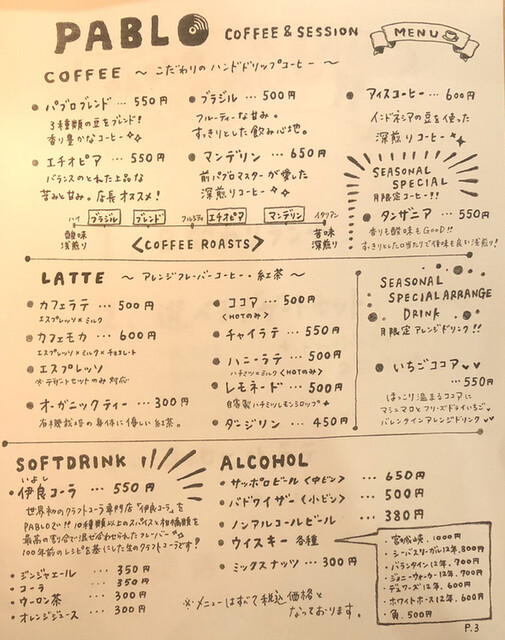 PABLO COFFEE & SESSION
MENU
COFFEE 〜 こだわりのハンドドリップコーヒー 〜
● パブロブレンド … 550円
3種類の豆をブレンド!
香り豊かなコーヒー
● エチオピア … 550円
バランスのとれた上品な
苦みと甘み。店長オススメ!
● ブラジル … 500円
フルーティーな甘み。
すっきりとした飲み心地。
● マンデリン … 650円
前パブロマスターが愛した
深煎りコーヒー
● アイスコーヒー … 600円
インドネシアの豆を使った
深煎りコーヒー
SEASONAL
SPECIAL
月限定コーヒー!!
● タンザニア … 550円
香りも酸味もGOOD!!
すっきりとした口当たりで後味も良い浅煎り!
ハイ ブラジル ブレンド フルシティ エチオピア マンデリン イタリアン
酸味 苦味
浅煎り 深煎り
<COFFEE ROASTS>
LATTE 〜 アレンジフレーバーコーヒー・紅茶 〜
● カフェラテ … 500円
エスプレッソ×ミルク
● カフェモカ … 600円
エスプレッソ×ミルク×チョコレート
● エスプレッソ
※デザートセットのみ対応
● オーガニックティー … 300円
有機栽培の身体に優しい紅茶。
● ココア … 500円
<HOTのみ>
● チャイラテ … 550円
● ハニーラテ … 500円
ハチミツ×ミルク<HOTのみ>
● レモネード … 500円
自家製ハチミツレモンシロップ
● ダージリン … 450円
SEASONAL
SPECIAL ARRANGE
DRINK
月限定アレンジドリンク!!
● いちごココア
… 550円
ほっこり温まるココアに
マシュマロとフリーズドライいちご
バレンタインアレンジドリンク
SOFTDRINK
いよし
● 伊良コーラ … 550円
世界初のクラフトコーラ専門店「伊良コーラ」を
PABLOで!! 10種類以上のスパイスと柑橘類を
最高の割合で混ぜ合わせられたフレーバー
100年前のレシピを基にした生のクラフトコーラです!
・ジンジャエール … 350円
・コーラ … 350円
・ウーロン茶 … 300円
・オレンジジュース … 300円
ALCOHOL
● サッポロビール<中ビン> … 650円
● バドワイザー<小ビン> … 500円
● ノンアルコールビール … 380円
● ウイスキー 各種
● ミックスナッツ … 300円
・宮城峡. 1000円
・シーバスリーガル12年. 800円
・バランタイン12年. 700円
・ジョニーウォーカー12年. 700円
・デュワーズ12年. 600円
・ホワイトホース12年. 600円
・角. 500円
※メニューはすべて税込価格と
なっております。
P.3